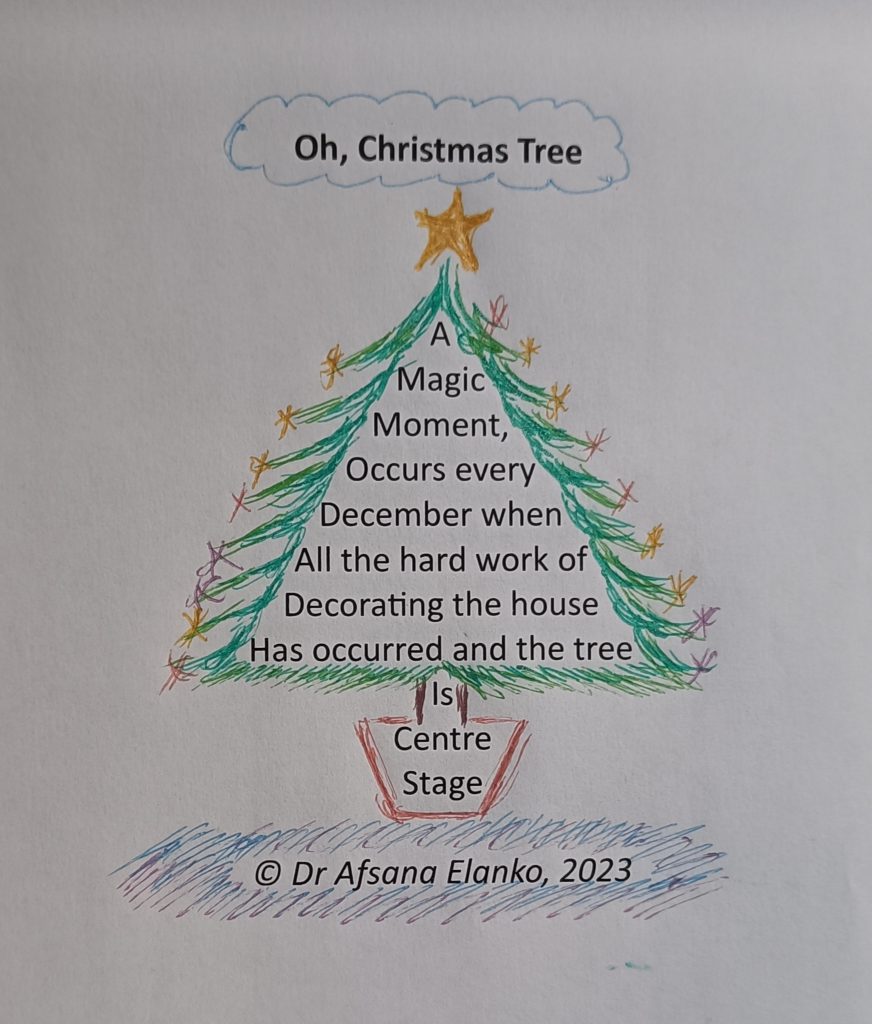 Oh, Christmas Tree
A
Magic
Moment,
Occurs every
December when
All the hard work of
Decorating the house
Has occurred and the tree
Is
Centre
Stage
© Dr Afsana Elanko, 2023